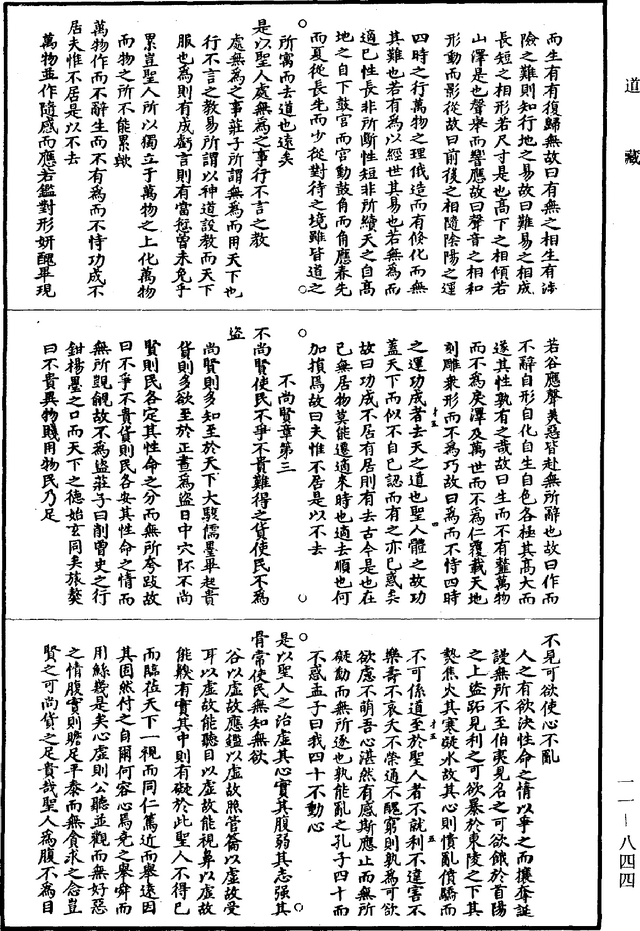 道藏
而生有有復歸無故曰有無之相生有涉
險之難則知行地之易故曰難易之相成
長短之相形若尺寸是也高下之相傾若
山澤是也聲舉而響應故曰聲音之相和
形動而影從故曰前後之相隨陰陽之運
四時之行萬物之理俄造而有倏化而無
其難也若有為以經世其易也若無為而
適己性長非所斷性短非所續天之自高
地之自下鼓宮而宮動鼓角而角應春先
而夏從長先而少從對待之境雖皆道之
所寓而去道也遠矣
是以聖人處無為之事行不言之教
處無為之事莊子所謂無為而用天下也
行不言之教易所謂以神道設教而天下
服也為則有成虧言則有當愆曾未免乎
累豈聖人所以獨立于萬物之上化萬物
而物之所不能累歟
萬物作而不辭生而不有為而不恃功成不
居夫惟不居是以不去
萬物並作隨感而應若鑑對形妍醜畢現
若谷應聲美惡皆赴無所辭也故曰作而
不辭自形自化自生自色各極其高大而
遂其性孰有之哉故曰生而不有䪠萬物
而不為戾澤及萬世而不為仁覆載天地
刻雕衆形而不為巧故曰為而不恃四時
之運功成者去天之道也聖人體之故功
蓋天下而似不自己認而有之亦已惑矣
故曰功成不居有居則有去古今是也在
己無居物莫能遷適來時也適去順也何
加損焉故曰夫惟不居是以不去
不尚賢章第三
不尚賢使民不爭不貴難得之貨使民不為
盜
尚賢則多知至於天下大駭儒墨畢起貴
貨則多欲至於正晝為盜日中穴阫不尚
賢則民各定其性命之分而無所夸跂故
曰不爭不貴貨則民各安其性命之情而
無所覬覦故不為盜莊子曰削曾史之行
鉗楊墨之口而天下之德始玄同矣旅獒
曰不貴異物賤用物民乃足
不見可欲使心不亂
人之有欲決性命之情以爭之而攘奪誕
謾無所不至伯夷見名之可欲餓於首陽
之上盜跖見利之可欲暴於東陵之下其
熱焦火其寒凝水故其心則憒亂僨驕而
不可係道至於聖人者不就利不違害不
樂壽不哀夭不榮通不醜窮則孰為可欲
欲慮不萌吾心湛然有感斯應止而無所
礙動而無所逐也孰能亂之孔子四十而
不惑孟子曰我四十不動心
是以聖人之治虛其心實其腹弱其志強其
骨常使民無知無欲
谷以虛故應鑑以虛故照管籥以虛故受
耳以虛故能聽目以虛故能視鼻以虛故
能齅有實其中則有礙於此聖人不得已
而臨莅天下一視而同仁篤近而舉遠因
其固然付之自爾何容心焉堯之舉舜而
用鯀幾是矣心虛則公聽並觀而無好惡
之情腹實則贍足平泰而無貪求之念豈
賢之可尚貨之足貴哉聖人為腹不為目
一一—八四四